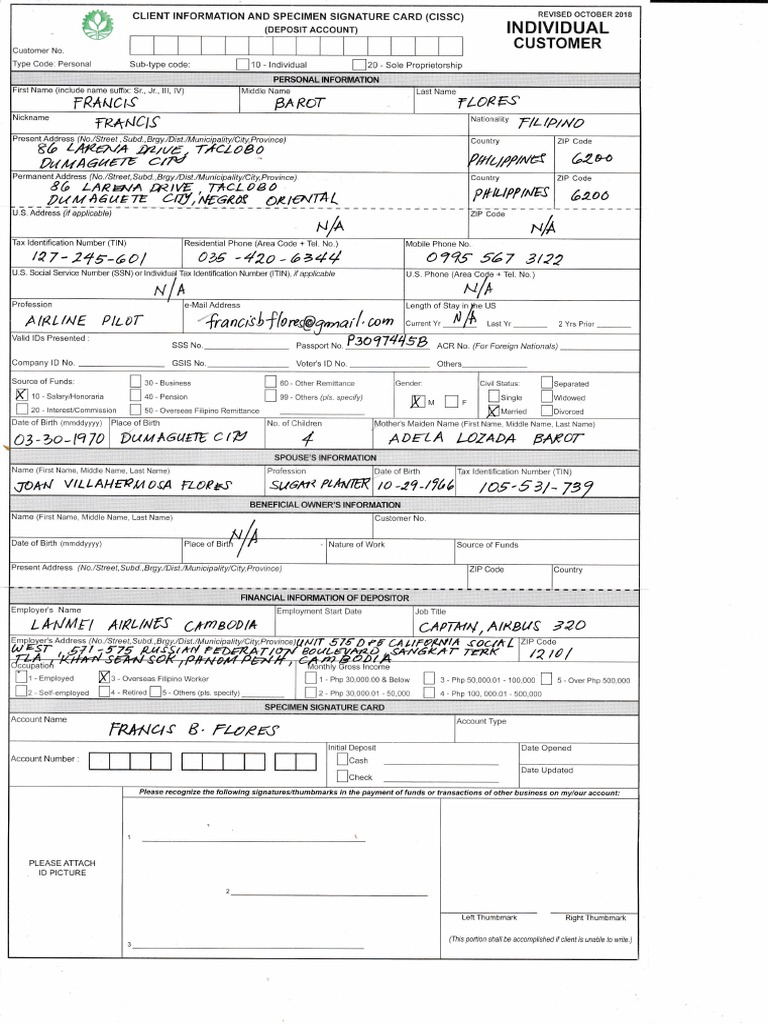 CLIENT INFORMATION AND SPECIMEN SIGNATURE CARD (CISSC)
(DEPOSIT ACCOUNT)
REVISED OCTOBER 2018
INDIVIDUAL
CUSTOMER
Customer No.
Type Code: Personal Sub-type code: 10 - Individual 20 - Sole Proprietorship
PERSONAL INFORMATION
First Name (include name suffix: Sr., Jr., III, IV) Middle Name Last Name
FRANCIS BAROT FLORES
Nickname Nationality
FRANCIS FILIPINO
Present Address (No./Street ,Subd.,Brgy./Dist./Municipality/City,Province) Country ZIP Code
86 LARENA DRIVE, TACLOBO
DUMAGUETE CITY PHILIPPINES 6200
Permanent Address (No./Street,Subd.,Brgy./Dist./Municipality/City,Province) Country ZIP Code
86 LARENA DRIVE, TACLOBO
DUMAGUETE CITY, NEGROS ORIENTAL PHILIPPINES 6200
U.S. Address (if applicable) ZIP Code
N/A N/A
Tax Identification Number (TIN) Residential Phone (Area Code + Tel. No.) Mobile Phone No.
127-245-601 035-420-6344 0995 567 3122
U.S. Social Service Number (SSN) or Individual Tax Identification Number (ITIN), if applicable U.S. Phone (Area Code + Tel. No.)
N/A N/A
Profession e-Mail Address Length of Stay in the US
AIRLINE PILOT francisbflores@gmail.com Current Yr N/A Last Yr 2 Yrs Prior
Valid IDs Presented : SSS No. Passport No. P3097445B ACR No. (For Foreign Nationals)
Company ID No. GSIS No. Voter's ID No. Others
Source of Funds: 30 - Business 60 - Other Remittance Gender: Civil Status: Separated
X 10 - Salary/Honoraria 40 - Pension 99 - Others (pls. specify) X M F Single Widowed
20 - Interest/Commission 50 - Overseas Filipino Remittance X Married Divorced
Date of Birth (mmddyyyy) Place of Birth No. of Children Mother's Maiden Name (First Name, Middle Name, Last Name)
03-30-1970 DUMAGUETE CITY 4 ADELA LOZADA BAROT
SPOUSE'S INFORMATION
Name (First Name, Middle Name, Last Name) Profession Date of Birth Tax Identification Number (TIN)
JOAN VILLAHERMOSA FLORES SUGAR PLANTER 10-29-1966 105-531-739
BENEFICIAL OWNER'S INFORMATION
Name (First Name, Middle Name, Last Name) Customer No.
N/A
Date of Birth (mmddyyyy) Place of Birth Nature of Work Source of Funds
Present Address (No./Street,Subd.,Brgy./Dist./Municipality/City,Province) ZIP Code Country
FINANCIAL INFORMATION OF DEPOSITOR
Employer's Name Employment Start Date Job Title
LANMEI AIRLINES CAMBODIA CAPTAIN, AIRBUS 320
Employer's Address (No./Street,Subd.,Brgy./Dist./Municipality/City,Province) UNIT 575 DPE CALIFORNIA SOCIAL ZIP Code
WEST, 571-575 RUSSIAN FEDERATION BOULEVARD, SANGKAT TERK 12101
TLA, KHAN SEAN SOK, PHNOM PENH, CAMBODIA
Occupation Monthly Gross Income
1 - Employed X 3 - Overseas Filipino Worker 1 - Php 30,000.00 & Below 3 - Php 50,000.01 - 100,000 5 - Over Php 500,000
2 - Self-employed 4 - Retired 5 - Others (pls. specify) 2 - Php 30,000.01 - 50,000 4 - Php 100, 000.01 - 500,000
SPECIMEN SIGNATURE CARD
Account Name Account Type
FRANCIS B. FLORES
Account Number : Initial Deposit Date Opened
Cash
Check Date Updated
Please recognize the following signatures/thumbmarks in the payment of funds or transactions of other business on my/our account:
1
PLEASE ATTACH
ID PICTURE
2
Left Thumbmark Right Thumbmark
3
(This portion shall be accomplished if client is unable to write.)